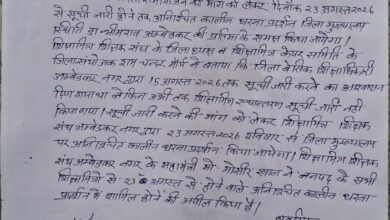 को लेकर दिनांक 23 अगस्त 2026
से सूची जारी होने तक अनिश्चित कालीन धरना प्रदर्शन जिला मुख्यालय
स्थित डा० भीमराव अम्बेडकर की प्रतिमा के समक्ष किया जायेगा।
शिक्षामित्र शिक्षक संघ के जिलाध्यक्ष व शिक्षामित्र केयर समिति के
जिला संयोजक राम चन्दर मौर्य ने बताया कि जिला बेसिक शिक्षाधिकारी
अम्बेडकर नगर द्वारा 15 अगस्त 2026 तक सूची जारी करने का आश्वासन
दिया गया था लेकिन अभी तक शिक्षामित्र स्थानान्तरण सूची जारी नहीं
किया गया। सूची जारी करने की मांग को लेकर शिक्षामित्र शिक्षक
संघ अम्बेडकर नगर द्वारा 23 अगस्त 2026 रविवार से जिला मुख्यालय
पर अनिश्चित कालीन धरना प्रदर्शन किया जायेगा। शिक्षामित्र शिक्षक
संघ अम्बेडकर नगर के महामंत्री मो० खान ने जनपद के सभी
शिक्षामित्रों से 23 अगस्त से होने वाले अनिश्चित कालीन धरना
प्रदर्शन में शामिल होने की अपील किया है।